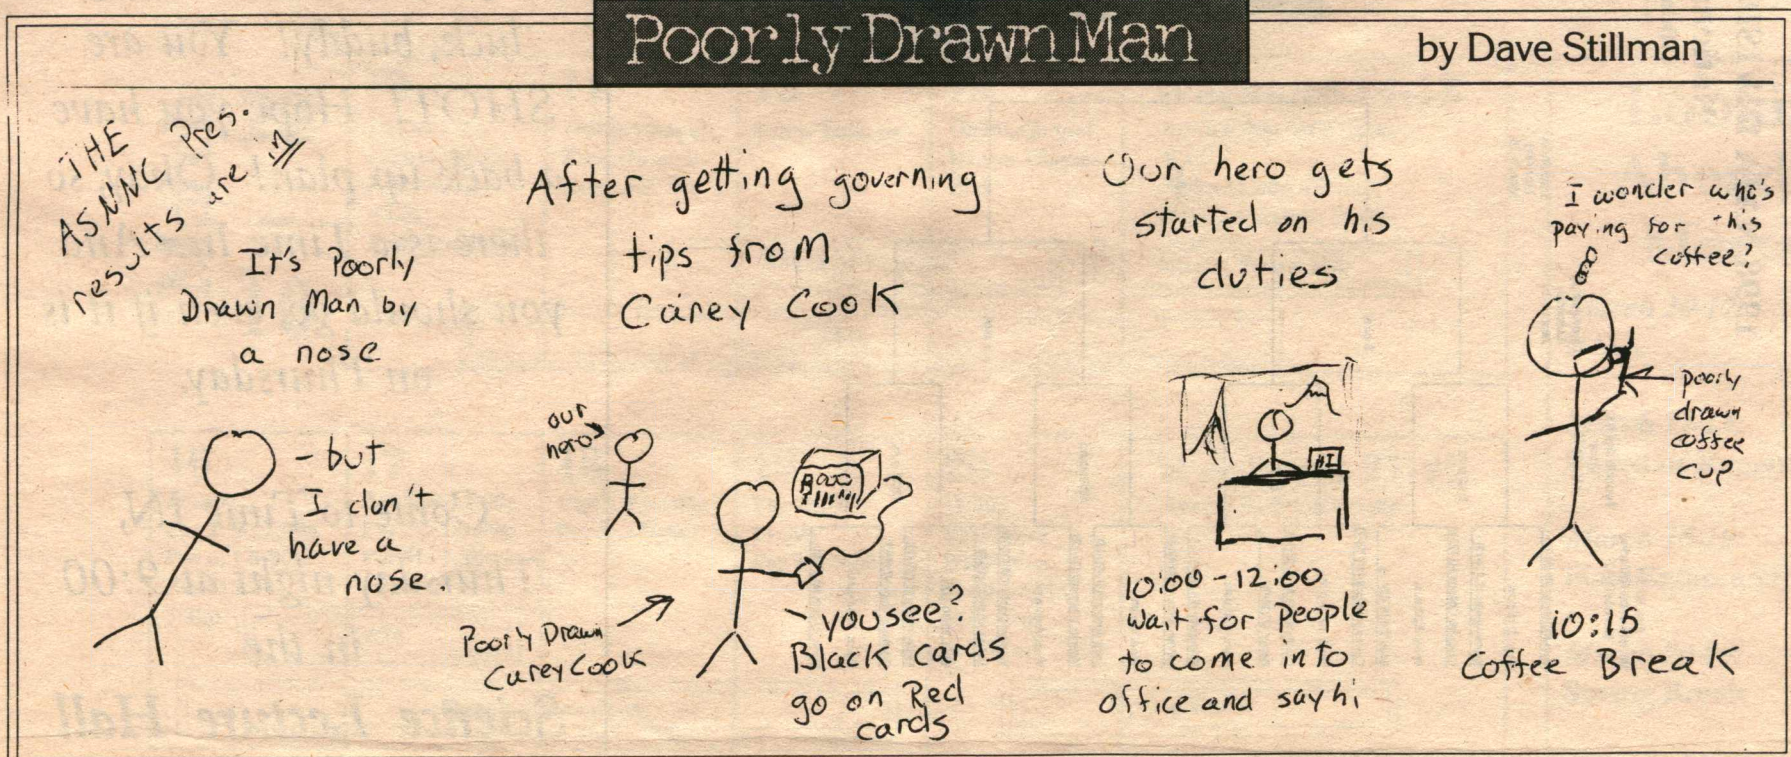 Poorly Drawn Man
by Dave Stillman
THE
ASNNC Pres.
results are in
It's Poorly
Drawn Man by
a nose
- but
I don't
have a
nose.
After getting governing
tips from
Carey Cook
our
hero
Poorly Drawn
Carey Cook
- you see?
Black cards
go on Red
cards
Our hero gets
started on his
duties
HI
10:00-12:00
Wait for people
to come into
office and say hi
I wonder who's
paying for this
coffee?
poorly
drawn
coffee
cup
10:15
Coffee Break